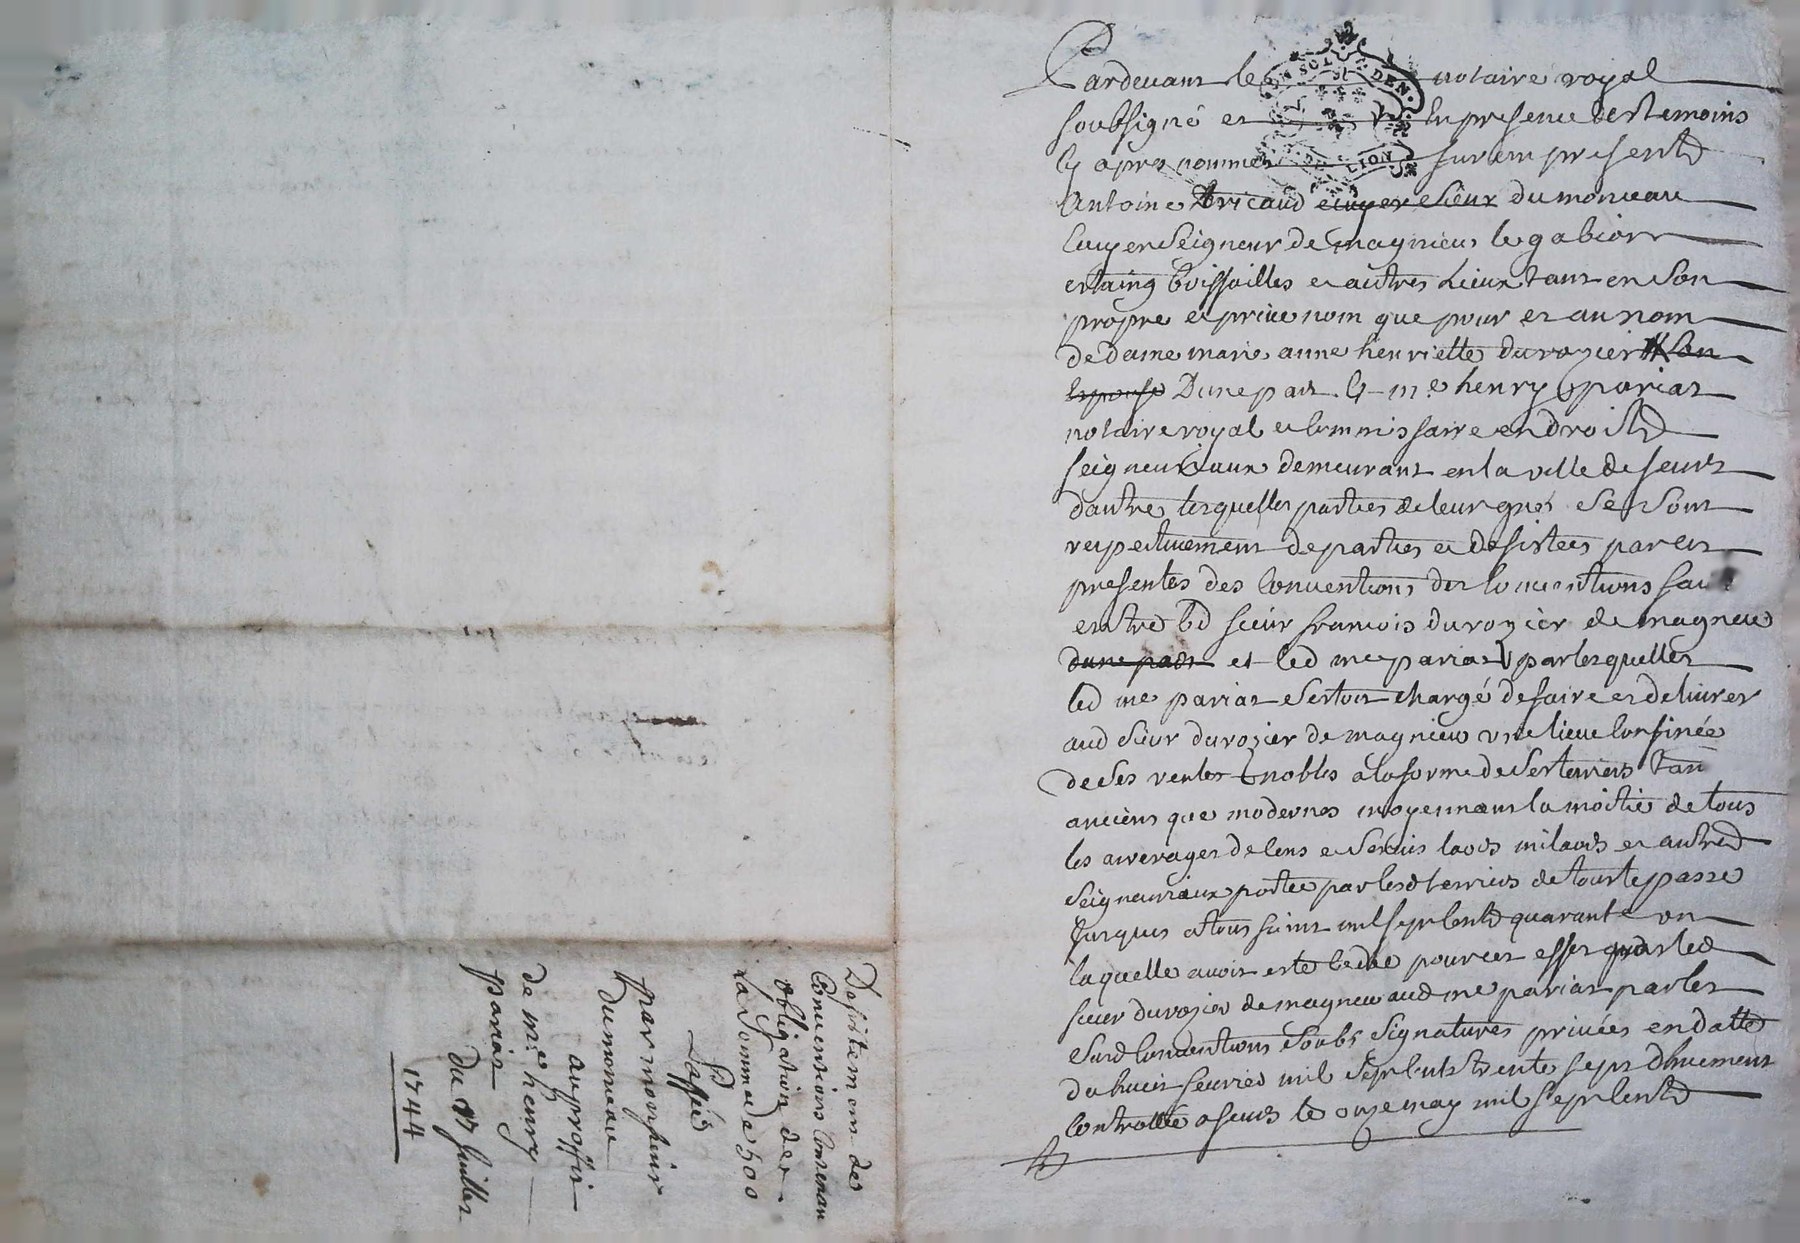 Pardevant le notaire royal
soubsigné et En presence des temoins
cy apres nommes furent presents
Antoine Bricaud ecuyer sieur du monceau
Ecuyer Seigneur de magnieu le gabion
et autres lieux tant en son
propre et privé nom que pour et au nom
de dame marie anne henriette durozier son
Espouse D'une part Et me henry pariat
notaire royal et Commissaire en droits
seigneuriaux demeurant en la ville de feurs
d'autre lesquelles parties de leur gré se sont
respectivement departies et desistees par ces
presentes des Conventions des Conventions
entre led sieur francois durozier de magneu
d'une part et led me pariat par lesquelles
led me pariat s'estoit chargé de faire et delivrer
aud sieur durozier de magnieu une lieve Confinée
de ses rentes nobles a la forme de ses terriers tant
anciens que modernes moyennant la moitié de tous
les arrerages de Cens et servis laods milaods et autres
seigneuriaux portée par lesd terriers de tout le passé
jusques a toussaint mil sept Cents quarante un
laquelle avoit esté Cedée pour cet effet par led
sieur durozier de magneu aud me pariat par les
susd Conventions soubs signatures privées en datte
du huit fevrier mil sept Cents trente sept dhuement
Controllée a feurs le onze may mil sept Cents
Desistement de
Conventions Contenant
obligation de
La Somme de 500
Passée
par monsieur
Dumonceau
au proffit
de me henry
pariat
Du juillet
1744